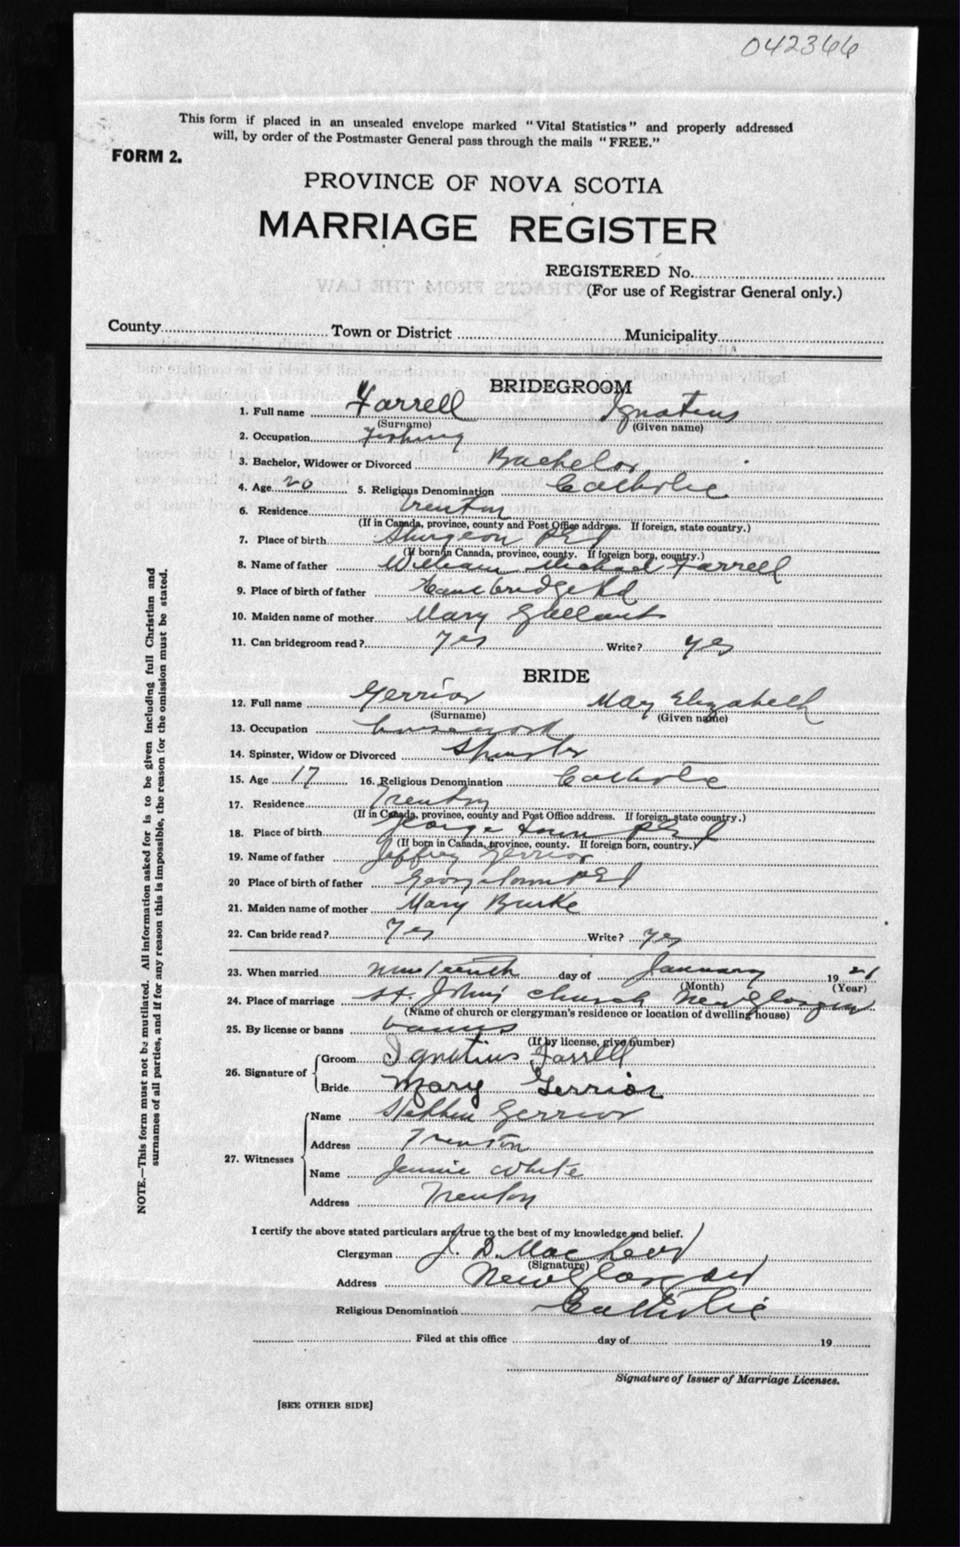 042366
This form if placed in an unsealed envelope marked "Vital Statistics" and properly addressed
will, by order of the Postmaster General pass through the mails "FREE."
FORM 2.
PROVINCE OF NOVA SCOTIA
MARRIAGE REGISTER
REGISTERED No.
(For use of Registrar General only.)
County Town or District Municipality
BRIDEGROOM
1. Full name Farrell Ignatius
(Surname) (Given name)
2. Occupation Fishing
3. Bachelor, Widower or Divorced Bachelor
4. Age 20 5. Religious Denomination Catholic
6. Residence Trenton
(If in Canada, province, county and Post Office address. If foreign, state country.)
7. Place of birth Sturgeon P E I
(If born in Canada, province, county. If foreign born, country.)
8. Name of father William Michael Farrell
9. Place of birth of father
10. Maiden name of mother Mary Gallant
11. Can bridegroom read? Yes Write? yes
BRIDE
12. Full name Gerrior Mary Elizabeth
(Surname) (Given name)
13. Occupation housework
14. Spinster, Widow or Divorced Spinster
15. Age 17 16. Religious Denomination Catholic
17. Residence Trenton
(If in Canada, province, county and Post Office address. If foreign, state country.)
18. Place of birth George town P E I
(If born in Canada, province, county. If foreign born, country.)
19. Name of father Jeffrey Gerrior
20 Place of birth of father Georgetown P E I
21. Maiden name of mother Mary Burke
22. Can bride read? Yes Write? Yes
23. When married nineteenth day of January 1921
(Month) (Year)
24. Place of marriage St. John's church New Glasgow
(Name of church or clergyman's residence or location of dwelling house)
25. By license or banns banns
(If by license, give number)
26. Signature of Groom Ignatius Farrell
Bride Mary Gerrior
27. Witnesses Name Stephen Gerrior
Address Trenton
Name Jennie White
Address Trenton
I certify the above stated particulars are true to the best of my knowledge and belief.
Clergyman J. D. MacLeod
(Signature)
Address New Glasgow
Religious Denomination Catholic
Filed at this office day of 19
Signature of Issuer of Marriage Licenses.
[SEE OTHER SIDE]
NOTE.—This form must not be mutilated. All information asked for is to be given including full Christian and
surnames of all parties, and if for any reason this is impossible, the reason for the omission must be stated.